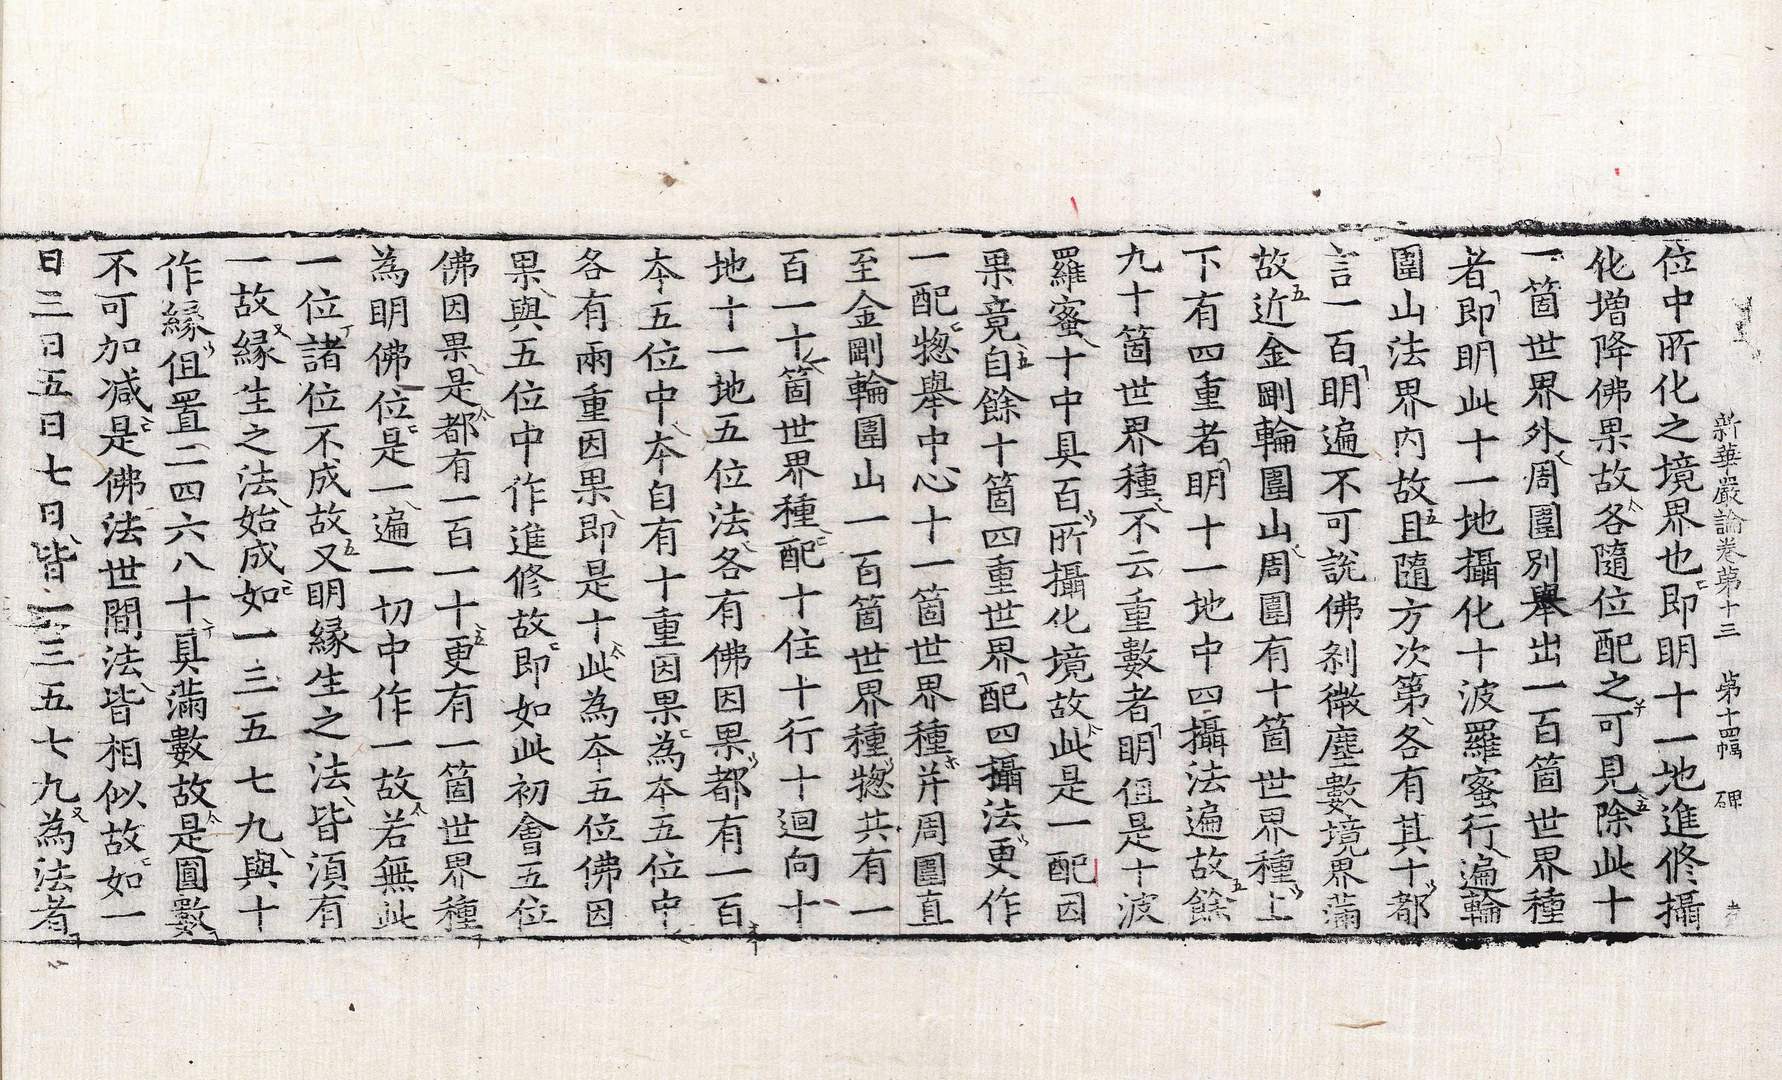 新華嚴論卷第十三　第十四幅　碑
位中所化之境界也即明十一地進修攝
化增降佛果故各隨位配之可見除此十
一箇世界外周圍別舉出一百箇世界種
者即明此十一地攝化十波羅蜜行遍輪
圍山法界內故且隨方次第各有其十都
言一百明遍不可說佛刹微塵數境界滿
故近金剛輪圍山周圍有十箇世界種上
下有四重者明十一地中四攝法遍故餘
九十箇世界種不云重數者明但是十波
羅蜜十中具百所攝化境故此是一配因
果竟自餘十箇四重世界配四攝法更作
一配惣舉中心十一箇世界種并周圍直
至金剛輪圍山一百箇世界種惣共有一
百一十箇世界種配十住十行十迴向十
地十一地五位法各有佛因果都有一百
夲五位中夲自有十重因果為本五位中
各有兩重因果即是十此為夲五位佛因
果與五位中作進修故即如此初會五位
佛因果是都有一百一十更有一箇世界種
為明佛位是一遍一切中作一故若無此
一位諸位不成故又明緣生之法皆湏有
一故緣生之法始成如一三五七九與十
作緣但置二四六八十具滿數故是圓數
不可加減是佛法世間法皆相似故如一
日三日五日七日皆一三五七九為法者